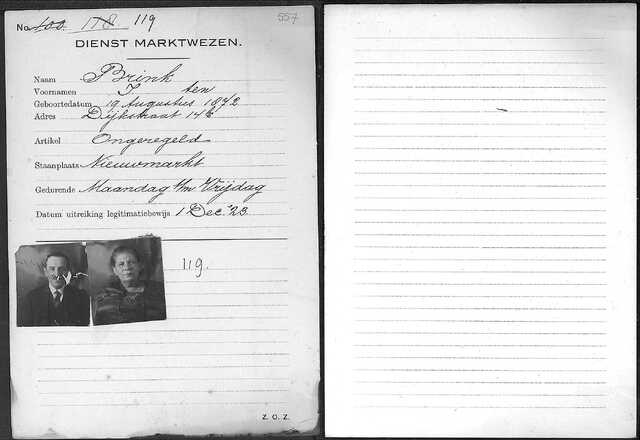 No. 100. 118 119
557
DIENST MARKTWEZEN.
Naam Brink
Voornamen J. ten
Geboortedatum 19 Augustus 1872
Adres Dijkstraat 14
Artikel Ongeregeld
Staanplaats Nieuwmarkt
Gedurende Maandag t/m Vrijdag
Datum uitreiking legitimatiebewijs 1 Dec. '23.
119.
Z. O. Z.